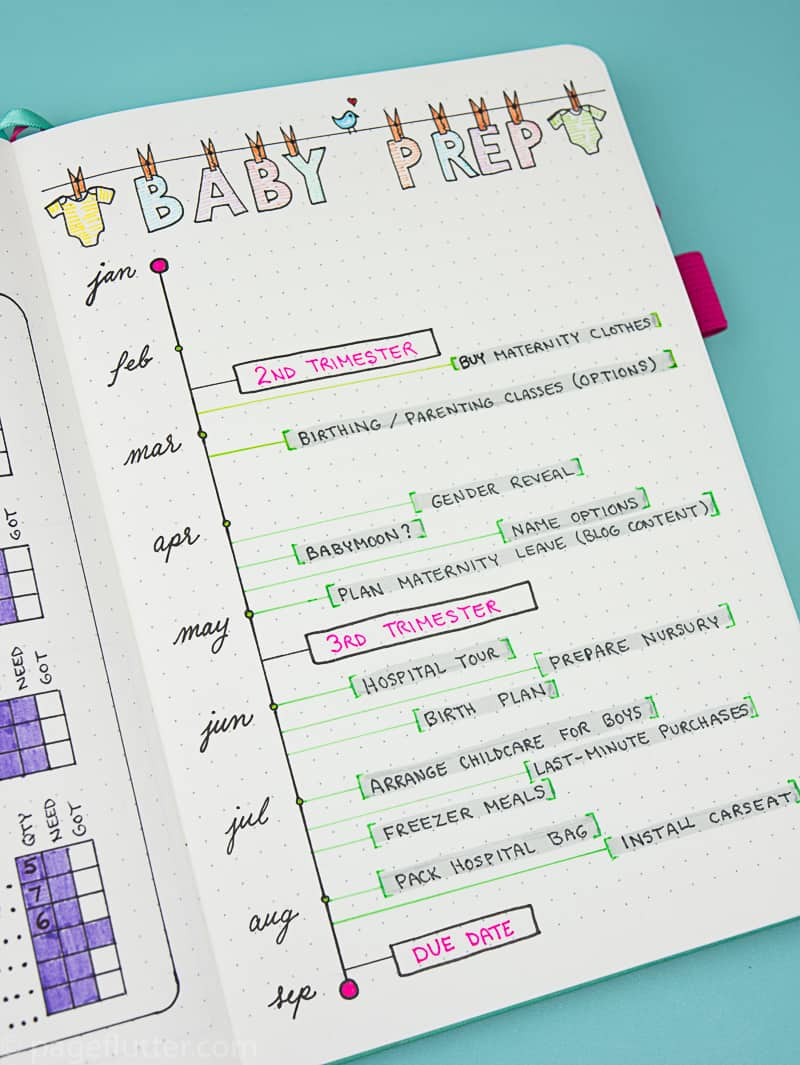 BABY PREP
jan
feb
2ND TRIMESTER
BUY MATERNITY CLOTHES
BIRTHING / PARENTING CLASSES (OPTIONS)
mar
GENDER REVEAL
apr
BABYMOON?
NAME OPTIONS
PLAN MATERNITY LEAVE (BLOG CONTENT)
may
3RD TRIMESTER
HOSPITAL TOUR
PREPARE NURSURY
jun
BIRTH PLAN
ARRANGE CHILDCARE FOR BOYS
LAST-MINUTE PURCHASES
jul
FREEZER MEALS
PACK HOSPITAL BAG
INSTALL CARSEAT
aug
DUE DATE
sep
GOT
NEED
GOT
QTY
NEED
GOT
5
7
6
pageflutter.com